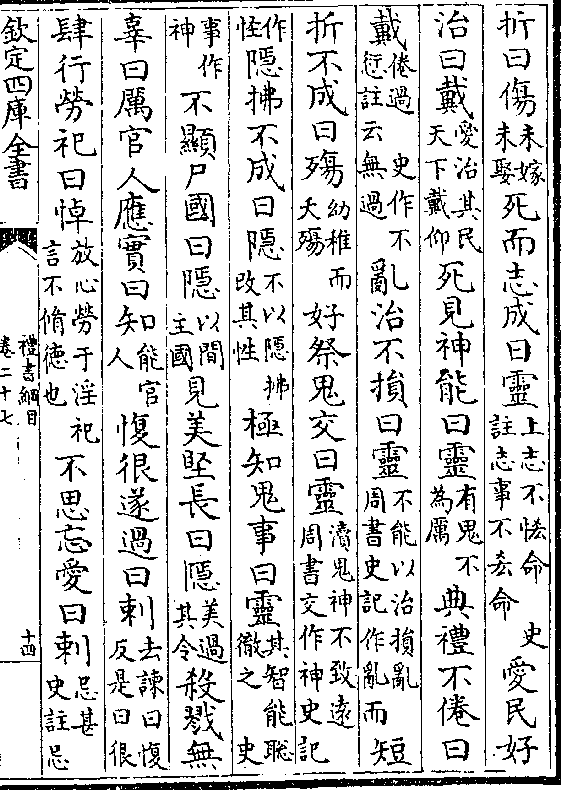 折曰傷未嫁未娶死而志成曰靈上志不怯命 史註志事不厺命愛民好
治曰戴愛治其民天下戴仰死見神能曰靈有鬼不為厲典禮不倦曰
戴倦過 史作不愆註云無過亂治不損曰靈不能以治損亂周書史記作亂而短
折不成曰殤幼稚而夭殤好祭鬼交曰靈瀆鬼神不致遠周書交作神史記
作怪隠拂不成曰隠不以隠拂改其性極知鬼事曰靈其智能聡徹之 史
事作神不顯尸國曰隠以間主國見美堅長曰隠美過其令殺戮無
辜曰厲官人應實曰知能官人愎很遂過曰刺去諫曰愎反是曰很
肆行勞祀曰悼放心勞于淫祀言不脩德也不思忘愛曰刺忌甚史註忌
欽定四庫全書
禮書綱目
卷二十七
十四